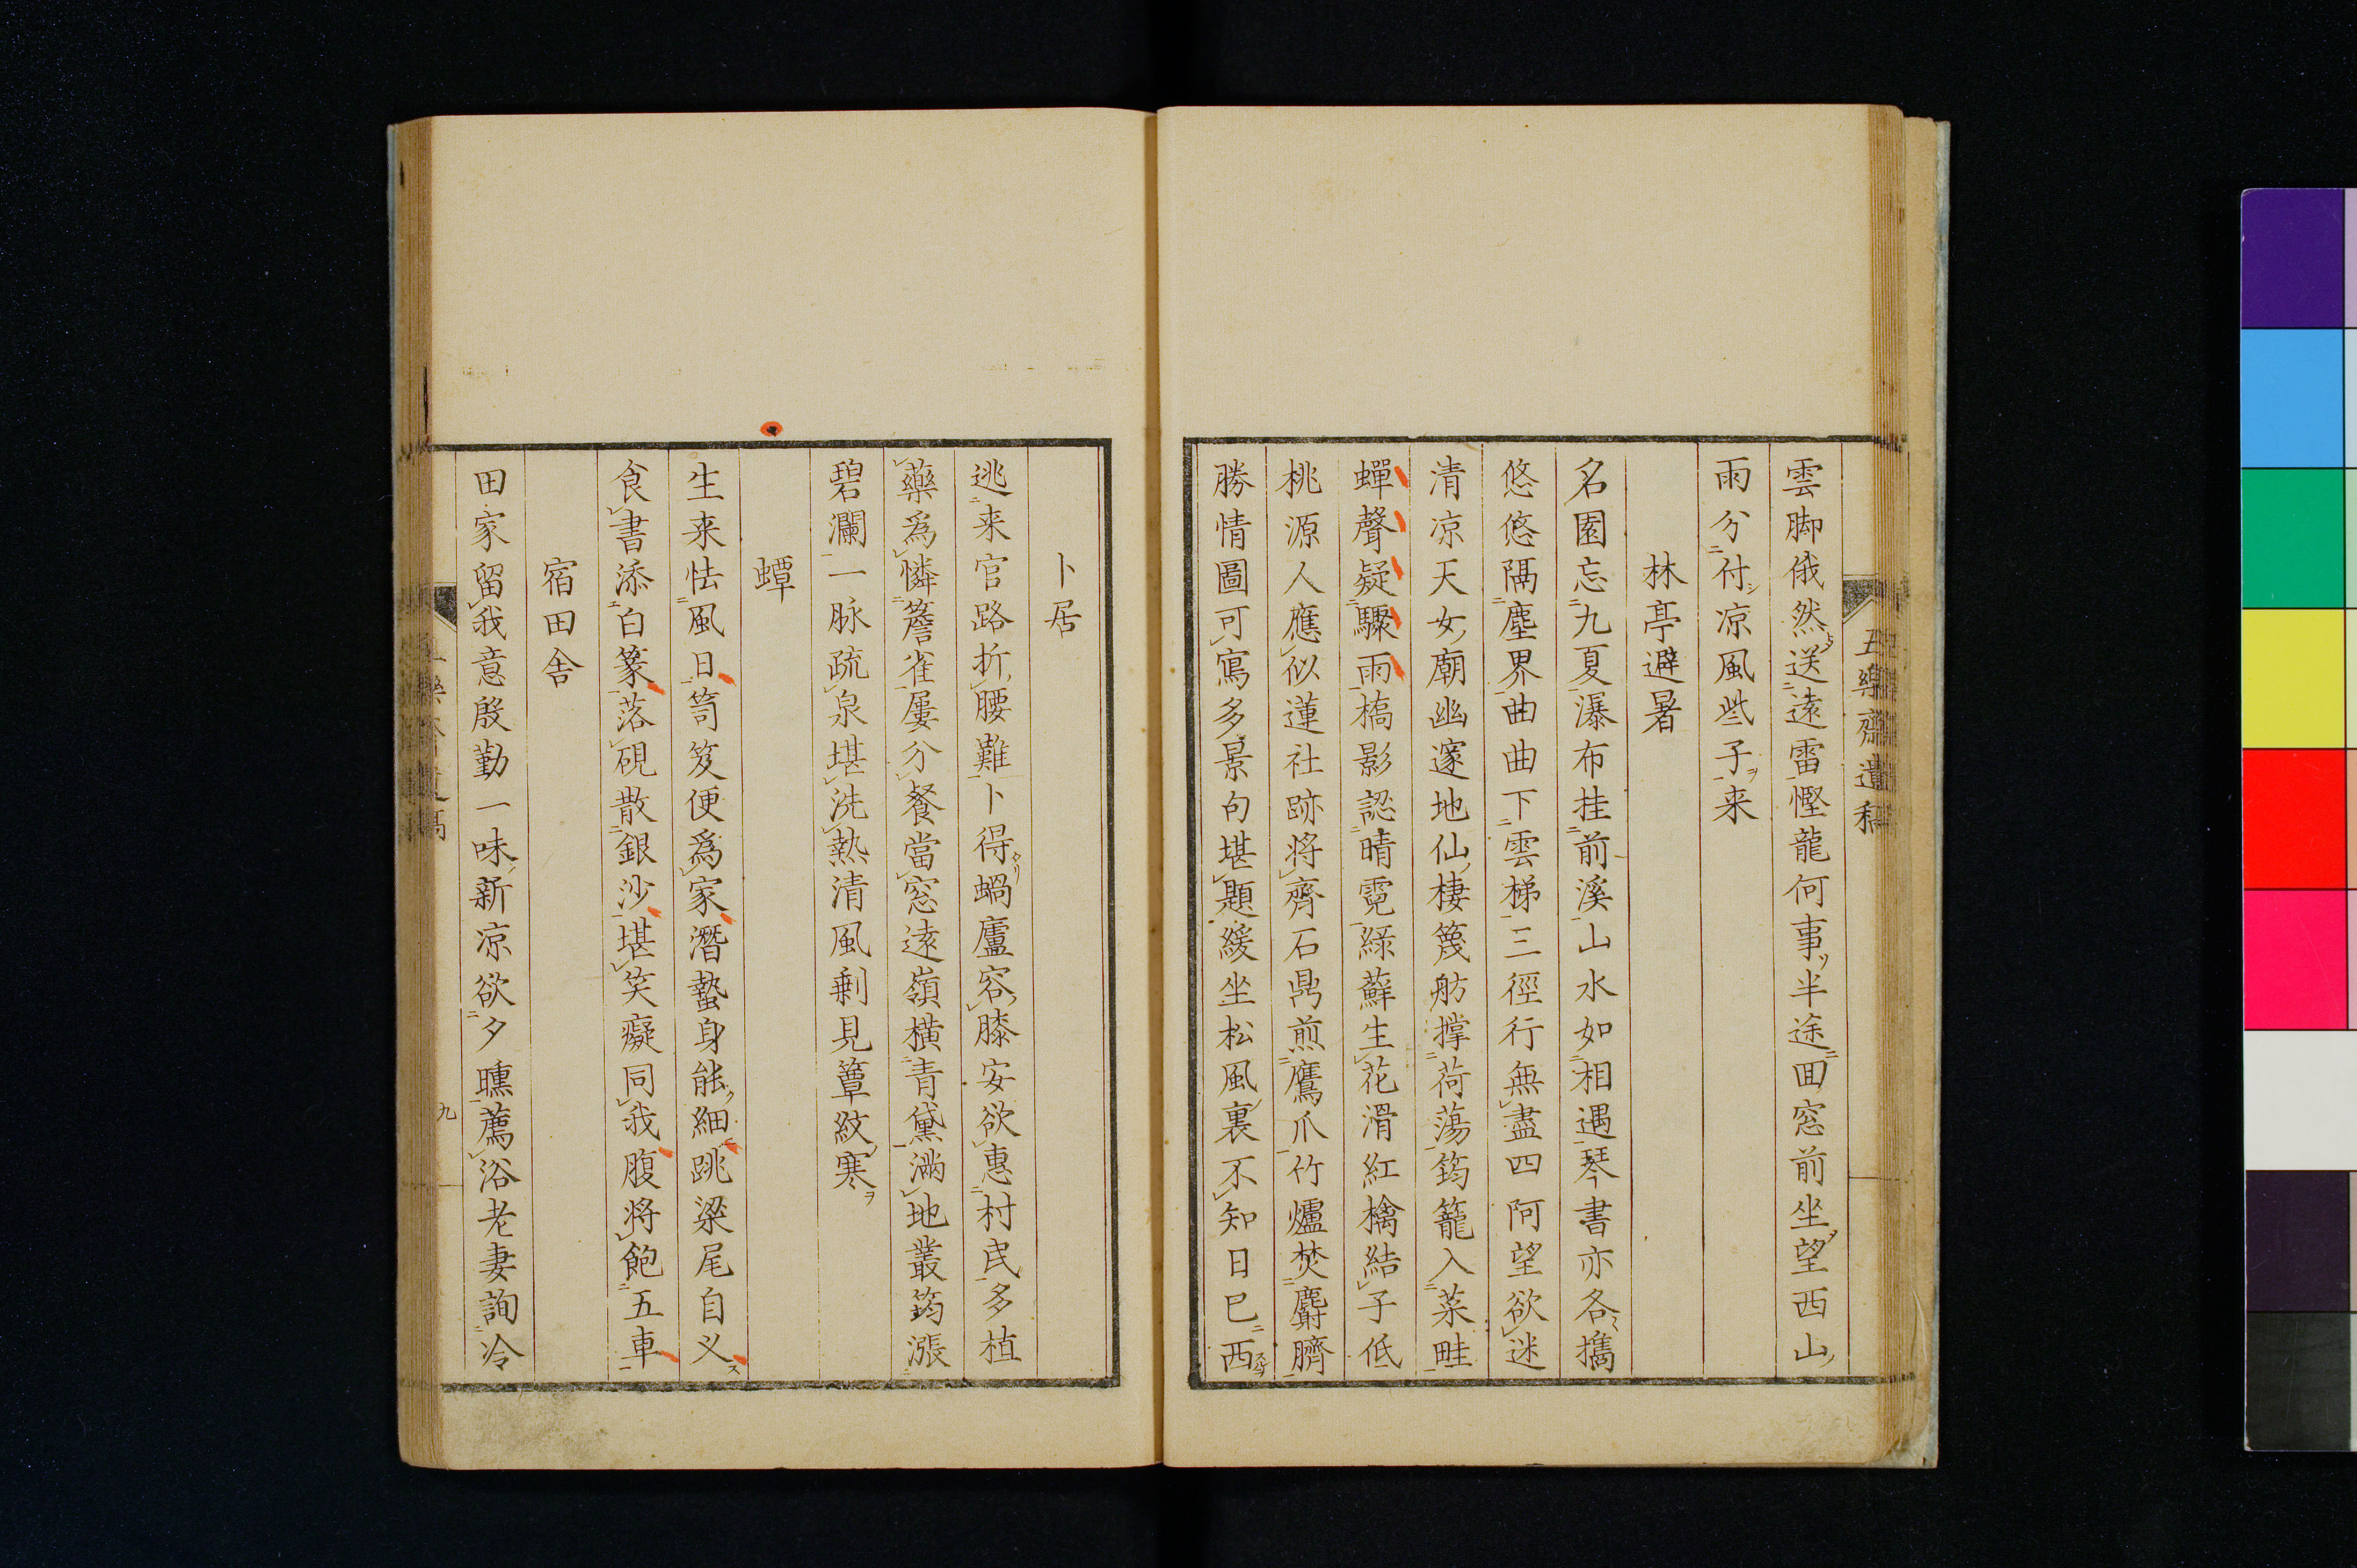 五樂齋遺稿
雲脚俄然送遠雷慳龍何事半途囬窓前坐望西山
雨分付凉風些子来
林亭避暑
名園忘九夏瀑布挂前溪山水如相遇琴書亦各携
悠悠隔塵界曲曲下雲梯三徑行無盡四阿望欲迷
清凉天女廟幽邃地仙棲篾舫撑荷蕩筠籠入菜畦
蟬聲疑驟雨橋影認晴霓綠蘚生花滑紅檎結子低
桃源人應似蓮社跡将齊石鼎煎鷹爪竹爐焚麝臍
勝情圖可寫多景句堪題緩坐松風裏不知日已西
卜居
逃来官路折腰難卜得蝸廬容膝安欲惠村民多植
藥為憐簷雀屢分餐當窓遠嶺橫青黛滿地叢筠漲
碧瀾一脉疏泉堪洗熱清風剩見簟紋寒
蟫
生来怯風日笥笈便為家潛蟄身能細跳梁尾自义
食書添白篆落硯散銀沙堪笑癡同我腹将飽五車
宿田舎
田家留我意殷勤一味新凉欲夕曛薦浴老妻詢冷
九